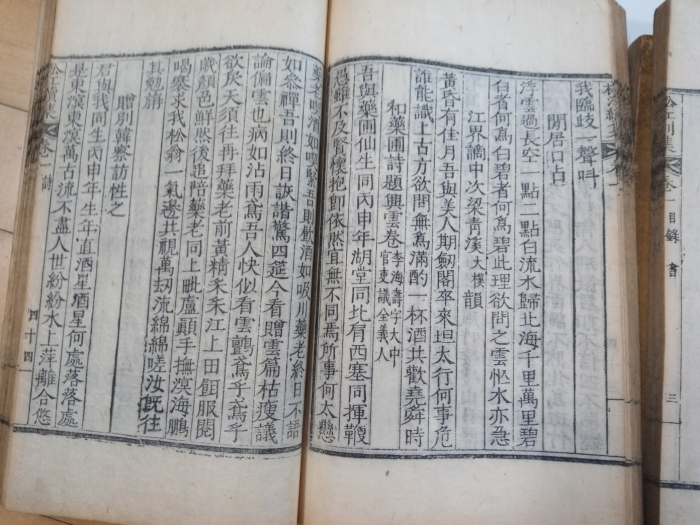 我臨歧一聲呌
閒居口占
浮雲過長空一點二點白流水歸北海千里萬里碧
白者何爲白碧者何爲碧此理欲問之雲忙水亦急
江界謫中次梁靑溪大樸韻
黃昏有佳月吾與美人期劒閣卒來坦太行何事危
誰能識上古方欲問無爲滿酌一杯酒共歡堯舜時
和藥圃詩題興雲卷李海壽字大中官吏議全義人
吾與藥圃仙生同丙申年湖堂同比肩西塞同揮鞭
雖不及賢懷抱卽依然宜無不同焉所事一何太懸
藥老喫酒如喫吾則飮酒如吸川藥老終日不語
如參禪吾則終日詼諧驚四筵今看贈雲篇枯瘦議
論偏雲也病如沾雨鳶吾人快似看雲鸇鳶乎鳶乎
欲戾天須往再拜藥老前黃精采采江上田餌服閱
歲顏色鮮然後追陪藥老同上毗盧顚手撫溟海鵬
喝塞求我松翁一氣邊共視萬刼流綿綿嗟汝旣往
其勉旃
贈別韓察訪性之
君與我同生丙申年生年直酒星酒星何處落落處
是東漢東漢萬古流不盡人世紛紛水上萍離合悠
卷一 詩
四十四
松江別集 卷一 目錄 書
三